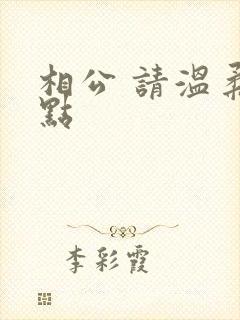 相公 請溫柔
點
李彩霞